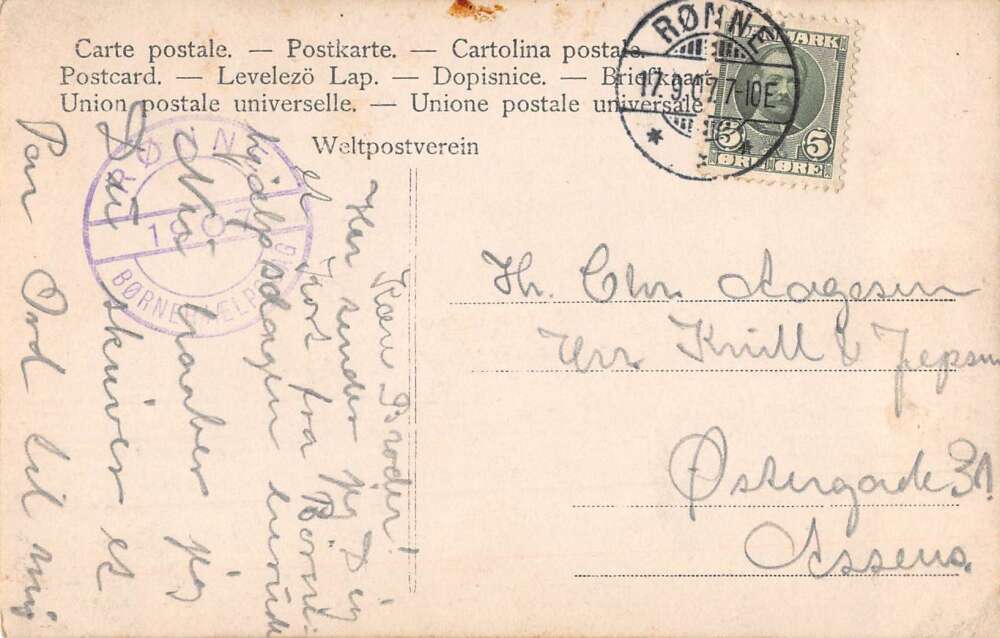 Carte postale. — Postkarte. — Cartolina postale.
Postcard. — Levelezö Lap. — Dopisnice. — Briefkaart
Union postale universelle. — Unione postale universale
Weltpostverein
RØNNE
17.9.07. 7-10E
DANMARK
5 5
ØRE ØRE
RØNNE
1907
BØRNEHJÆLPSDAG
Kære Broder!
Her sender jeg Dig
et Kort fra Börne-
hjælpsdagen
Nu haaber jeg
Du skriver et
Par Ord til mig
Hr. Chr. Aagesen
Hrr Krüll & Jepsen
Østergade 31.
Assens.